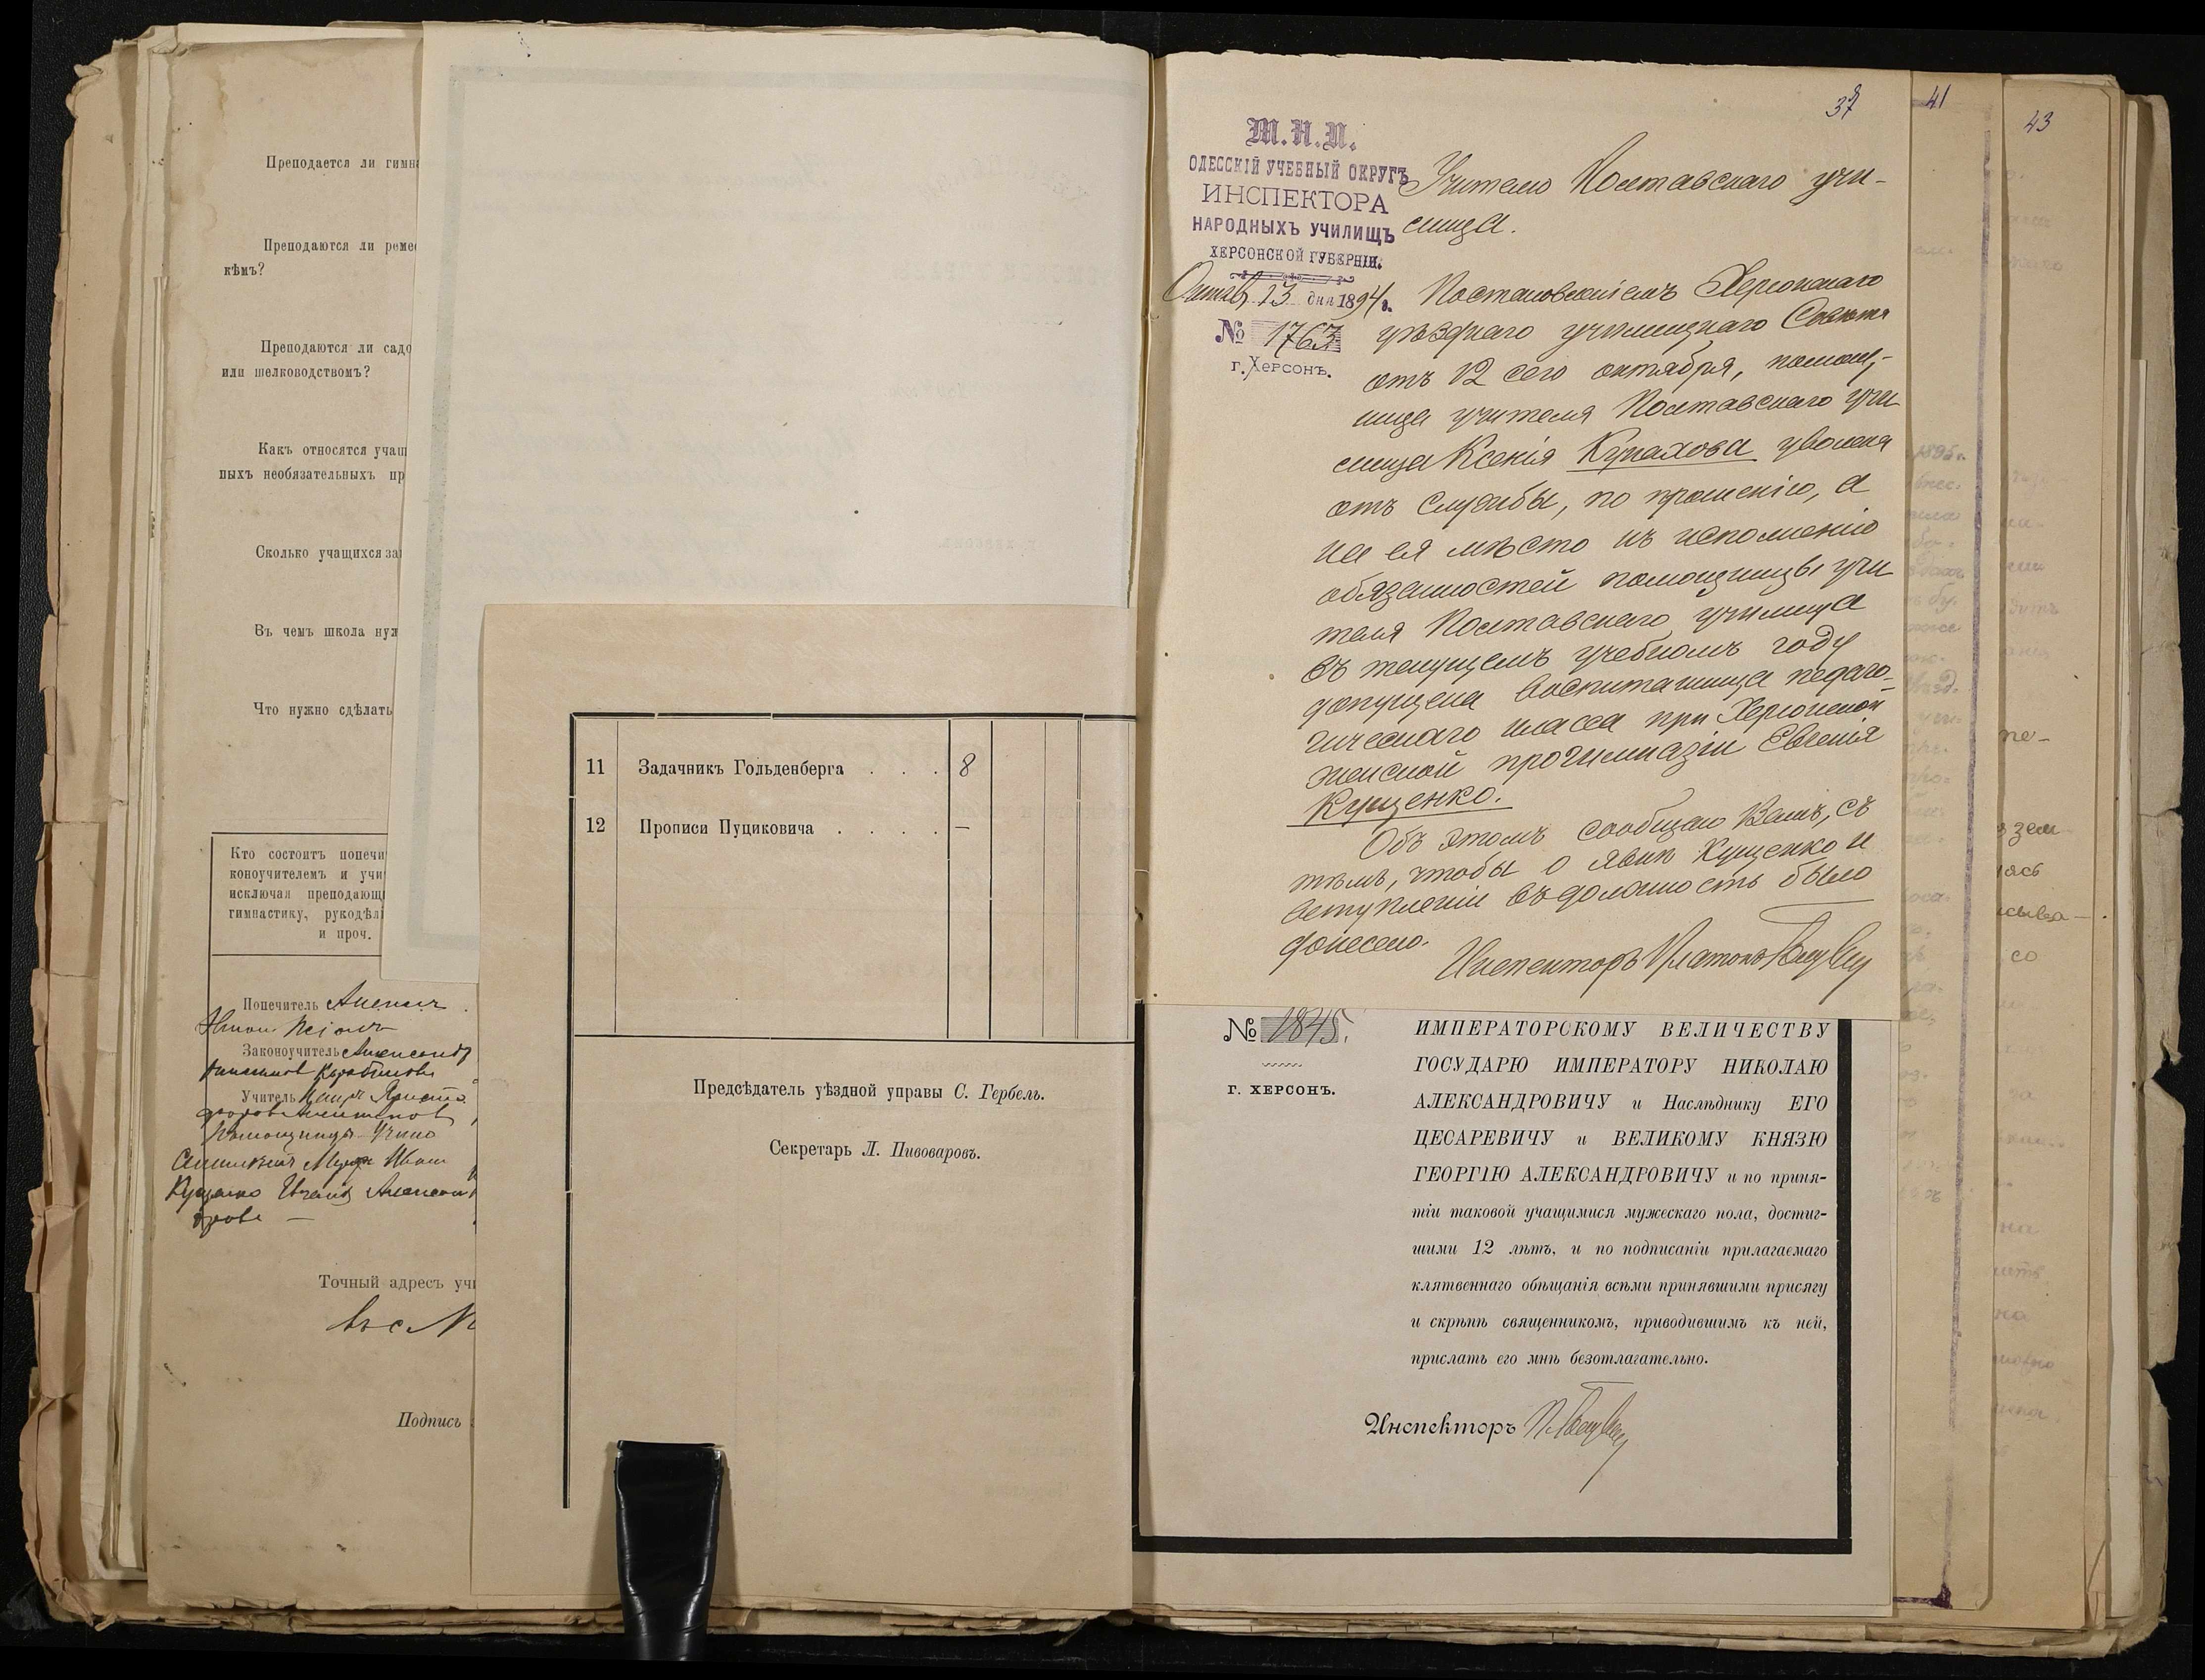 Преподается ли гимн
Преподаются ли реме
кѣмъ?
Преподаются ли садо
или шелководствомъ?
Какъ относятся учащ
ныхъ необязательныхъ пр
Сколько учащихся за
Въ чемъ школа нуж
Что нужно сдѣлать
Кто состоитъ попечи
коноучителемъ и учи
исключая преподающ
гимнастику, рукодѣл
и проч.
Попечитель
Законоучитель Александр
Учитель
Помощница Учит
Кущенко Евгенія Александ
рова —
Точный адресъ учи
въ с.
Подпись
11 Задачникъ Гольденберга . . . 8
12 Прописи Пуциковича . . . . —
Предсѣдатель уѣздной управы С. Гербель.
Секретарь Л. Пивоваровъ.
38
М.Н.П.
ОДЕССКІЙ УЧЕБНЫЙ ОКРУГЪ
ИНСПЕКТОРА
НАРОДНЫХЪ УЧИЛИЩЪ
ХЕРСОНСКОЙ ГУБЕРНІИ.
Октяб 13 дня 1894 г.
№ 1763
г. Херсонъ.
Учителю Полтавскаго учи-
лища.
Постановленіемъ Херсонскаго
уѣзднаго училищнаго Совѣта
отъ 12 сего октября, помощ-
ница учителя Полтавскаго учи
лища Ксенія Кулахова уволена
отъ службы, по прошенію, а
на ея мѣсто къ исполненію
обязанностей помощницы учи
теля Полтавскаго училища
въ текущемъ учебномъ году
допущена воспитанница педаго-
гическаго класса при Херсонской
женской прогимназіи Евгенія
Кущенко.
Объ этомъ сообщаю Вамъ, съ
тѣмъ, чтобы о явкѣ Кущенко и
вступленіи въ должность было
донесено.
Инспекторъ Платонъ
№ 1845.
г. ХЕРСОНЪ.
ИМПЕРАТОРСКОМУ ВЕЛИЧЕСТВУ
ГОСУДАРЮ ИМПЕРАТОРУ НИКОЛАЮ
АЛЕКСАНДРОВИЧУ и Наслѣднику ЕГО
ЦЕСАРЕВИЧУ и ВЕЛИКОМУ КНЯЗЮ
ГЕОРГІЮ АЛЕКСАНДРОВИЧУ и по приня-
тіи таковой учащимися мужескаго пола, достиг-
шими 12 лѣтъ, и по подписаніи прилагаемаго
клятвеннаго обѣщанія всѣми принявшими присягу
и скрѣпѣ священникомъ, приводившимъ къ ней,
прислать его мнѣ безотлагательно.
Инспекторъ
41
1895 г.
43
пе-
зем
лась
сыва-
со